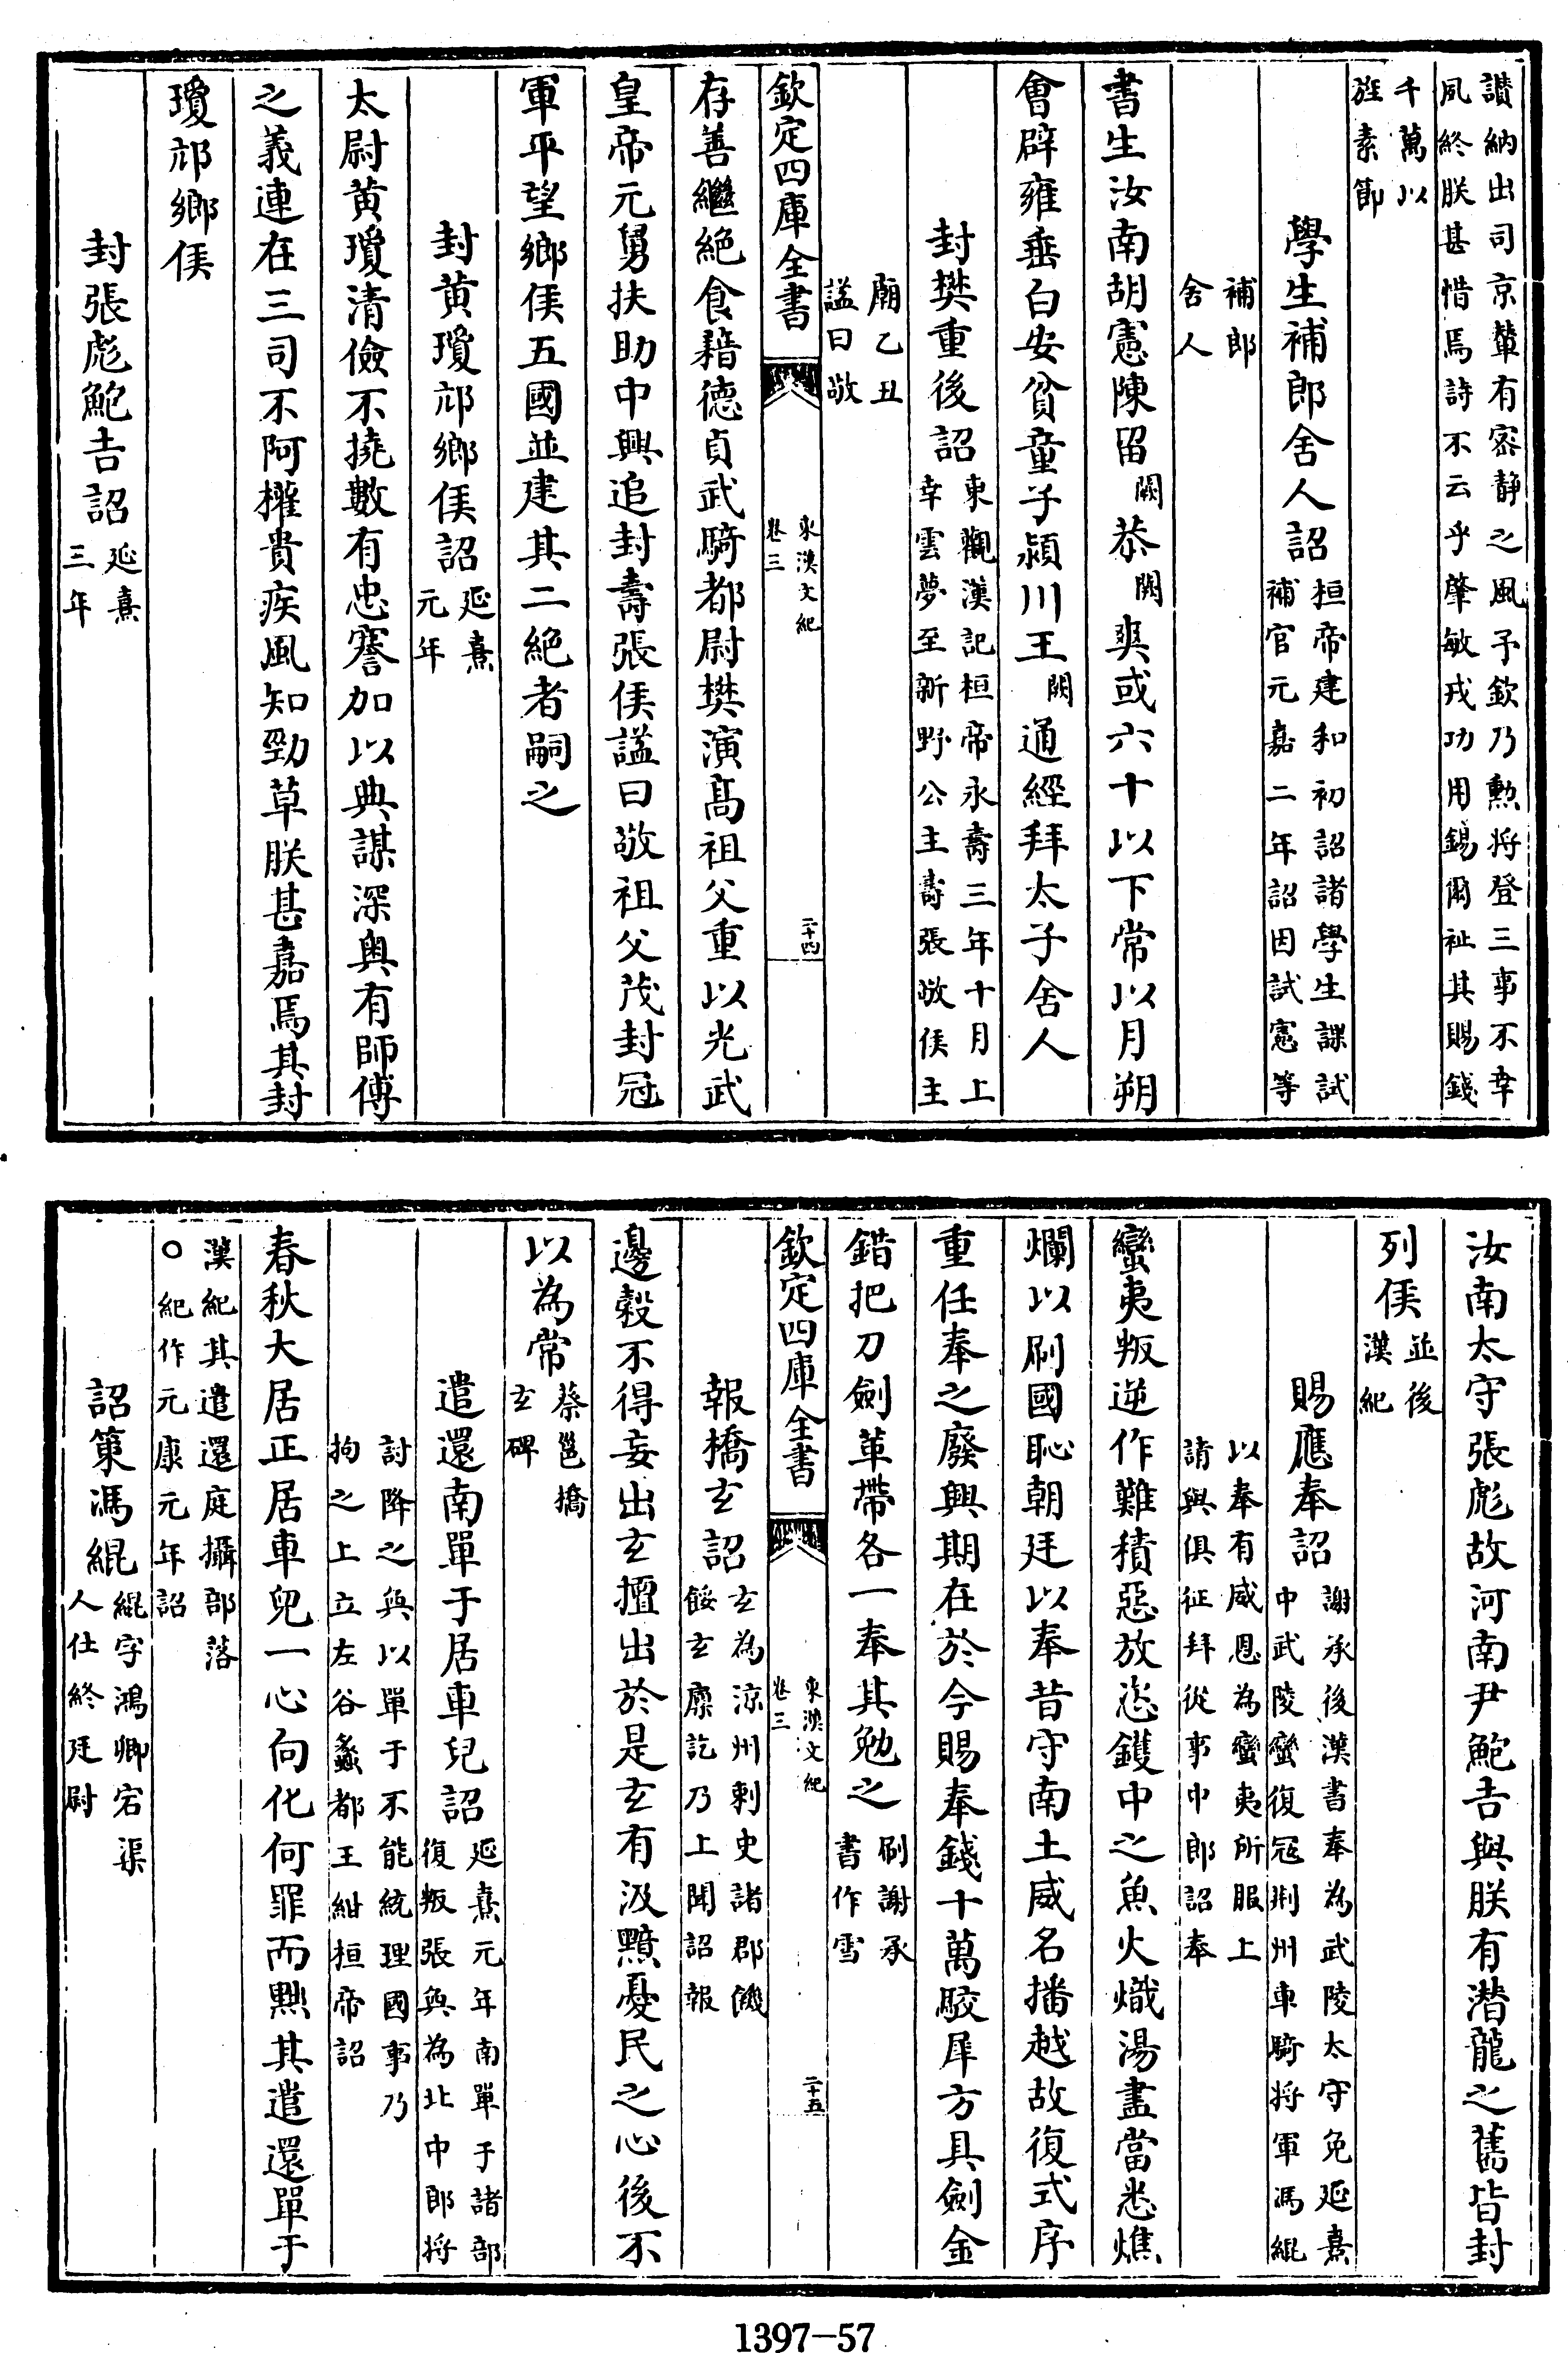 讃納出司京輦有宻静之風予欽乃勲将登三事不幸
夙終朕甚惜焉詩不云乎肇敏戎功用錫爾祉其賜錢
千萬以
旌素節
學生補郎舍人詔
桓帝建和初詔諸學生課試
補官元嘉二年詔因試憲等
補郎
舍人
書生汝南胡憲陳留闕恭闕㢤或六十以下常以月朔
會辟雍垂白安貧童子潁川王闕通經拜太子舍人
封樊重後詔
東觀漢記桓帝永壽三年十月上
幸雲夢至新野公主壽張敬侯主
廟乙丑
諡曰敬
欽定四庫全書
東漢文紀
卷三
二十四
存善繼絶食藉德貞武騎都尉樊演髙祖父重以光武
皇帝元舅扶助中興追封壽張侯諡曰敬祖父茂封冠
軍平望鄉侯五國並建其二絶者嗣之
封黄瓊邟鄉侯詔
延熹
元年
太尉黄瓊清儉不撓數有忠謇加以典謀深奥有師傅
之義連在三司不阿權貴疾風知勁草朕甚嘉焉其封
瓊邟鄉侯
封張彪鮑吉詔
延熹
三年
汝南太守張彪故河南尹鮑吉與朕有潛龍之舊皆封
列侯
並後
漢紀
賜應奉詔
謝承後漢書奉為武陵太守免延熹
中武陵蠻復冦荆州車騎將軍馮緄
以奉有威恩為蠻夷所服上
請與俱征拜從事中郎詔奉
蠻夷叛逆作難積惡放恣鑊中之魚火熾湯盡當悉燋
爛以刷國恥朝廷以奉昔守南土威名播越故復式序
重任奉之廢興期在於今賜奉錢十萬駮犀方具劍金
錯把刀劍革帶各一奉其勉之
刷謝承
書作雪
欽定四庫全書
東漢文紀
卷三
二十五
報橋玄詔
玄為涼州刺史諸郡饑
餒玄廪訖乃上聞詔報
邊榖不得妄出玄擅出於是玄有汲黯憂民之心後不
以為常
蔡邕橋
玄碑
遣還南單于居車兒詔
延熹元年南單于諸部
復叛張奐為北中郎將
討降之奐以單于不能統理國事乃
拘之上立左谷蠡都王紺桓帝詔
春秋大居正居車兒一心向化何罪而黜其遣還單于
漢紀其遣還庭攝部落
○紀作元康元年詔
詔策馮緄
緄字鴻卿宕渠
人仕終廷尉
1397—57